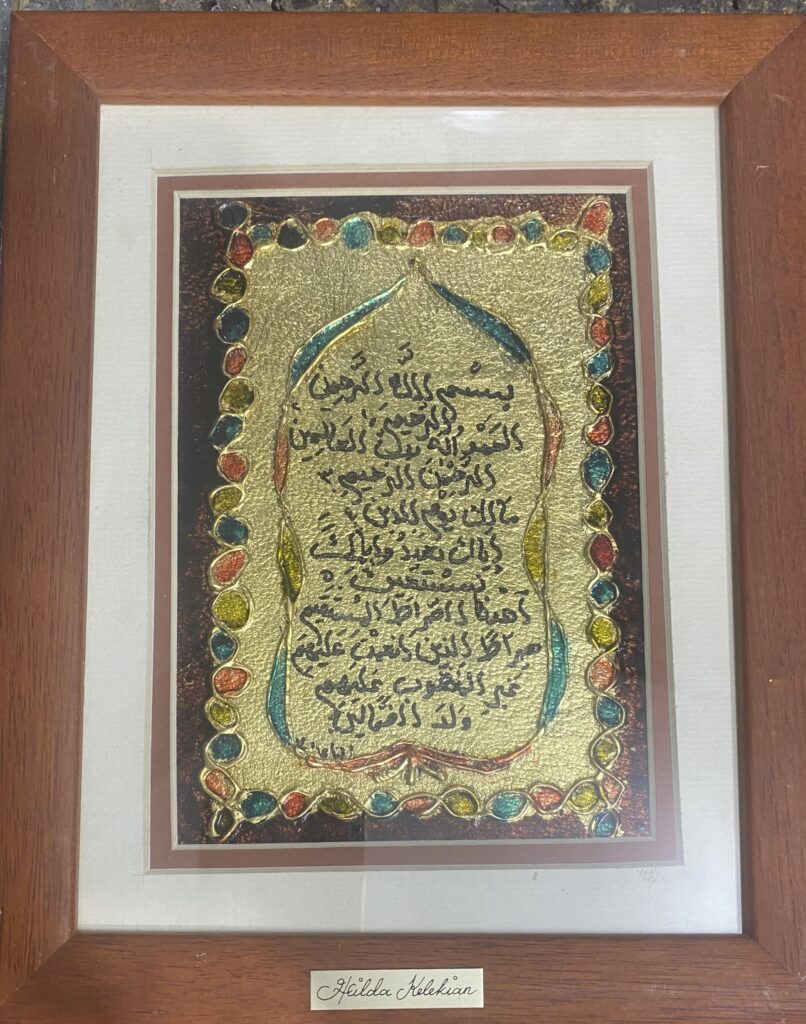 بِسْمِ اللَّهِ الرَّحْمٰنِ
الرحيم ١
الحَمْدُ لله رب العَالمين
الرَّحْمٰنِ الرحيمِ ٣
مَالِكِ يَوْمِ الدين ٤
إياكَ نَعْبُدُ وإياكَ
نَسْتَعِينُ ٥
اهْدِنَا الصِّرَاطَ المُسْتَقِيمَ
صِرَاطَ الذِينَ أنعمْتَ عَلَيْهِمْ
غَيرِ المَغْضُوبِ عَلَيهِمْ
وَلَا الضَّالِّينَ
Heilda Kelekian